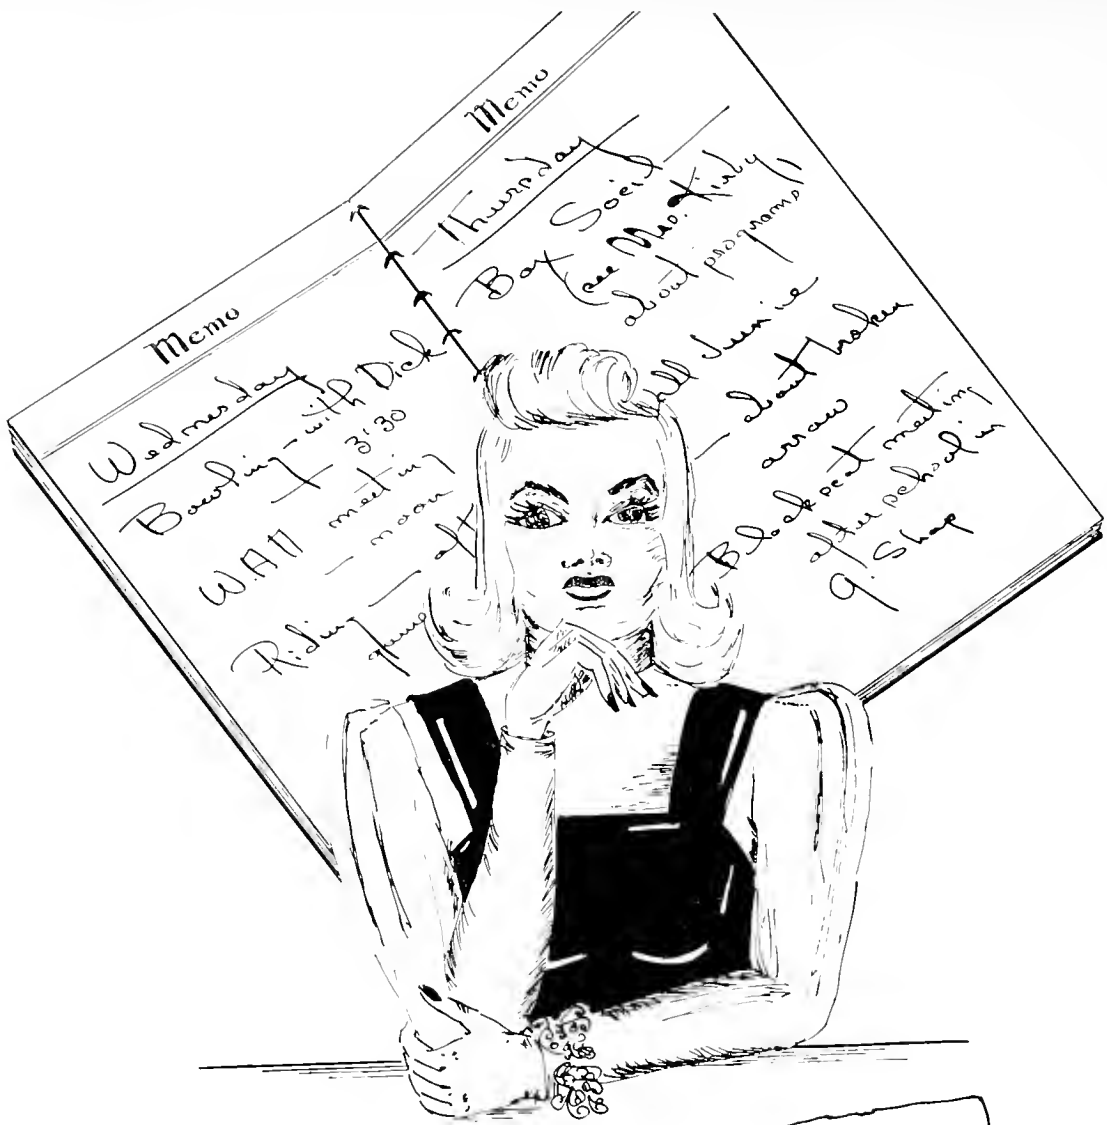 Memo
Wednesday
Bowling – with Dick
– 3:30
W.A.A. meeting
– noon
Riding –
Memo
Thursday
Box Social
(see Mrs. Kirby
about programs)
Junie
– about broken
arrow
Block meeting
after school in
g. Shop